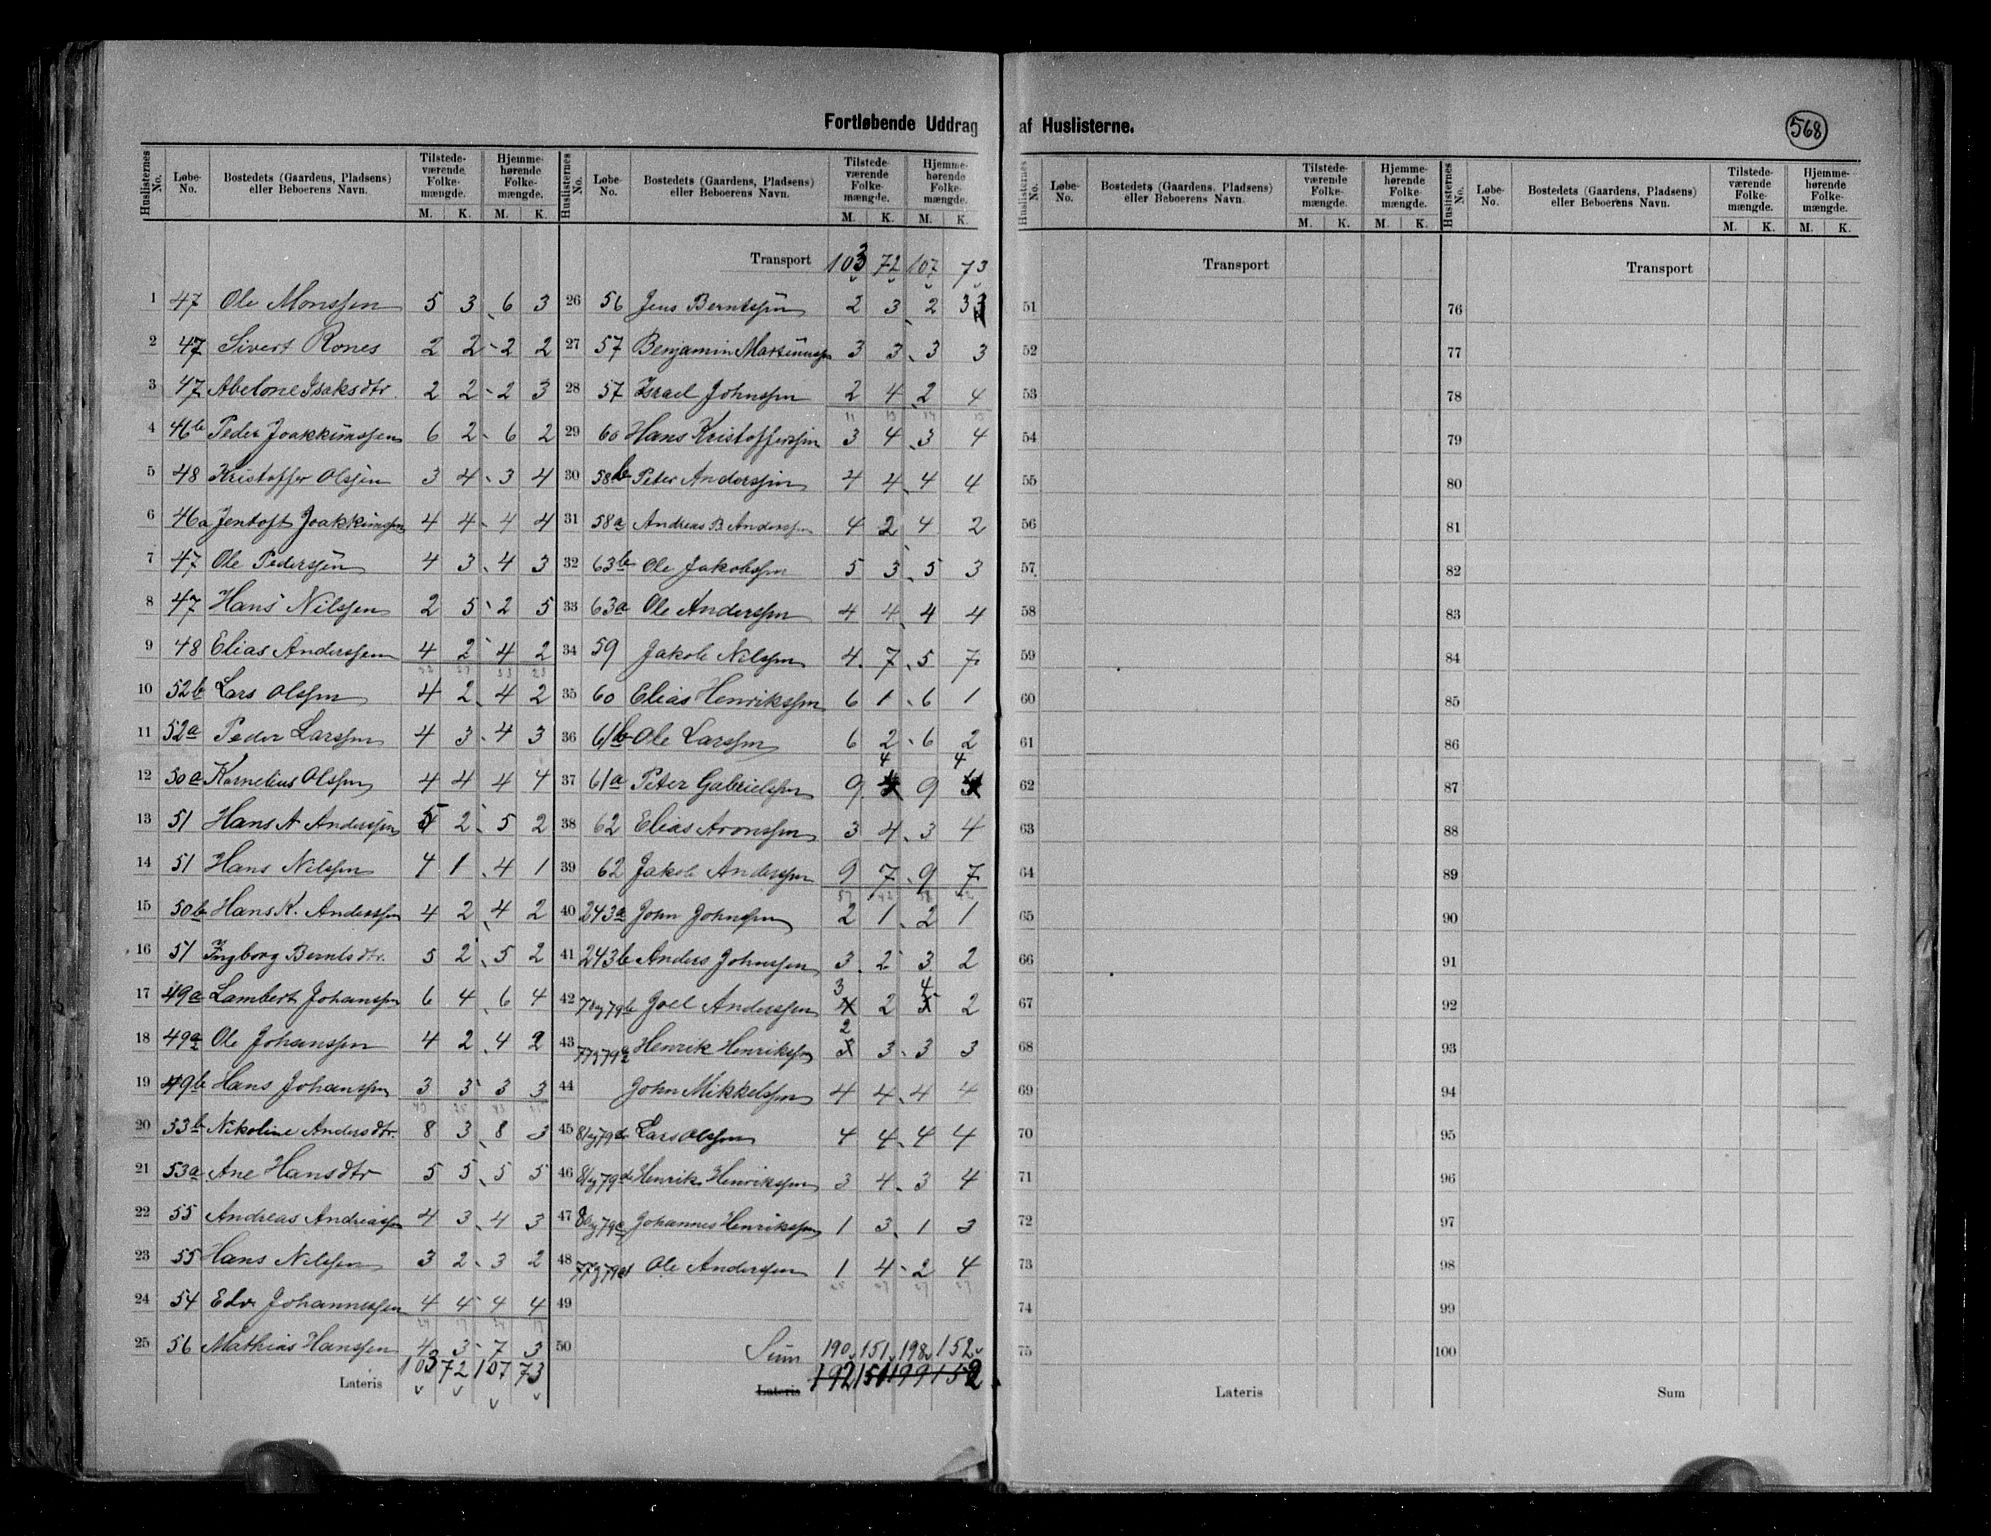 Fortløbende Uddrag af Huslisterne.
568
Huslisternes No. Løbe-No. Bostedets (Gaardens, Pladsens) eller Beboerens Navn. Tilstedeværende Folkemængde. M. K. Hjemmehørende Folkemængde. M. K.
1 47 Ole Monssen 5 3 6 3
2 47 Sivert Rones 2 2 2 2
3 47 Abelone Isaksdtr. 2 2 2 3
4 46b Peder Joakkimssen 6 2 6 2
5 48 Kristoffer Olssen 3 4 3 4
6 46a Jentoft Joakkimssen 4 4 4 4
7 47 Ole Pederssen 4 3 4 3
8 47 Hans Nilssen 2 5 2 5
9 48 Elias Anderssen 4 2 4 2
10 52b Lars Olssen 4 2 4 2
11 52a Peder Larssen 4 3 4 3
12 50a Kornelius Olssen 4 4 4 4
13 51 Hans N Anderssen 5 2 5 2
14 51 Hans Nilssen 4 1 4 1
15 50b Hans K. Anderssen 4 2 4 2
16 51 Ingborg Berntsdtr. 5 2 5 2
17 49a Lambert Johanssen 6 4 6 4
18 49a Ole Johanssen 4 2 4 2
19 49b Hans Johanssen 3 3 3 3
20 53b Nikoline Andersdtr. 8 3 8 3
21 53a Ane Hansdtr 5 5 5 5
22 55 Andreas Andreassen 4 3 4 3
23 55 Hans Nilssen 3 2 3 2
24 54 Edv. Johannessen 4 4 4 4
25 56 Mathias Hanssen 4 3 7 3
Lateris 103 72 107 73
Huslisternes No. Løbe-No. Bostedets (Gaardens, Pladsens) eller Beboerens Navn. Tilstedeværende Folkemængde. M. K. Hjemmehørende Folkemængde. M. K.
Transport 103 72 107 73
26 56 Jens Berntssen 2 3 2 3
27 57 Benjamin Martinussen 3 3 3 3
28 57 Israel Johnssen 2 4 2 4
29 60 Hans Kristofferssen 3 4 3 4
30 58b Peter Anderssen 4 4 4 4
31 58a Andreas B. Anderssen 4 2 4 2
32 63b Ole Jakobssen 5 3 5 3
33 63a Ole Anderssen 4 4 4 4
34 59 Jakob Nilssen 4 7 5 7
35 60 Elias Henrikssen 6 1 6 1
36 61b Ole Larssen 6 2 6 2
37 61a Peter Gabrielssen 9 4 9 4
38 62 Elias Aronssen 3 4 3 4
39 62 Jakob Anderssen 9 7 9 7
40 243a John Johnssen 2 1 2 1
41 243b Anders Johnssen 3 2 3 2
42 Joel Anderssen 3 2 4 2
43 Henrik Henrikssen 2 3 3 3
44 John Mikkelssen 4 4 4 4
45 Lars Olssen 4 4 4 4
46 Henrik Henrikssen 3 4 3 4
47 Johannes Henrikssen 1 3 1 3
48 Ole Anderssen 1 4 2 4
49
50 Sum 190 151 198 152
Lateris 192 151 199 152
Huslisternes No. Løbe-No. Bostedets (Gaardens, Pladsens) eller Beboerens Navn. Tilstedeværende Folkemængde. M. K. Hjemmehørende Folkemængde. M. K.
Transport
51
52
53
54
55
56
57
58
59
60
61
62
63
64
65
66
67
68
69
70
71
72
73
74
75
Lateris
Huslisternes No. Løbe-No. Bostedets (Gaardens, Pladsens) eller Beboerens Navn. Tilstedeværende Folkemængde. M. K. Hjemmehørende Folkemængde. M. K.
Transport
76
77
78
79
80
81
82
83
84
85
86
87
88
89
90
91
92
93
94
95
96
97
98
99
100
Sum